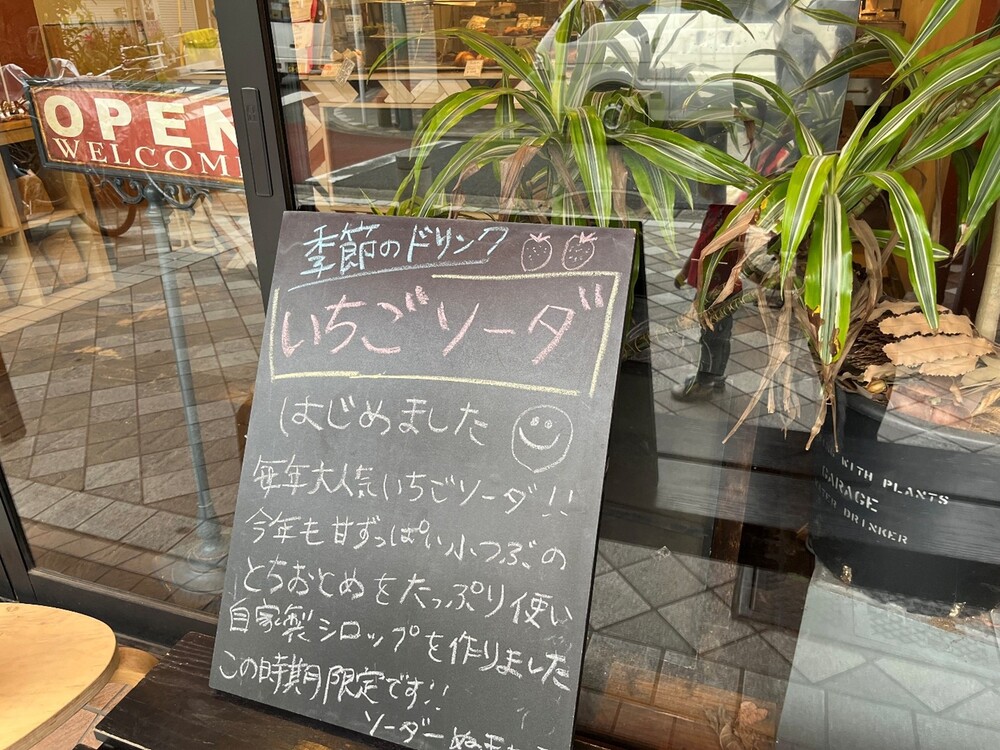 OPEN
WELCOME
季節のドリンク
いちごソーダ
はじめました
毎年大人気いちごソーダ!!
今年も甘ずっぱい小つぶの
とちおとめをたっぷり使い
自家製シロップを作りました
この時期限定です!!
ソーダー
KITH PLANTS
GARAGE
DRINKER